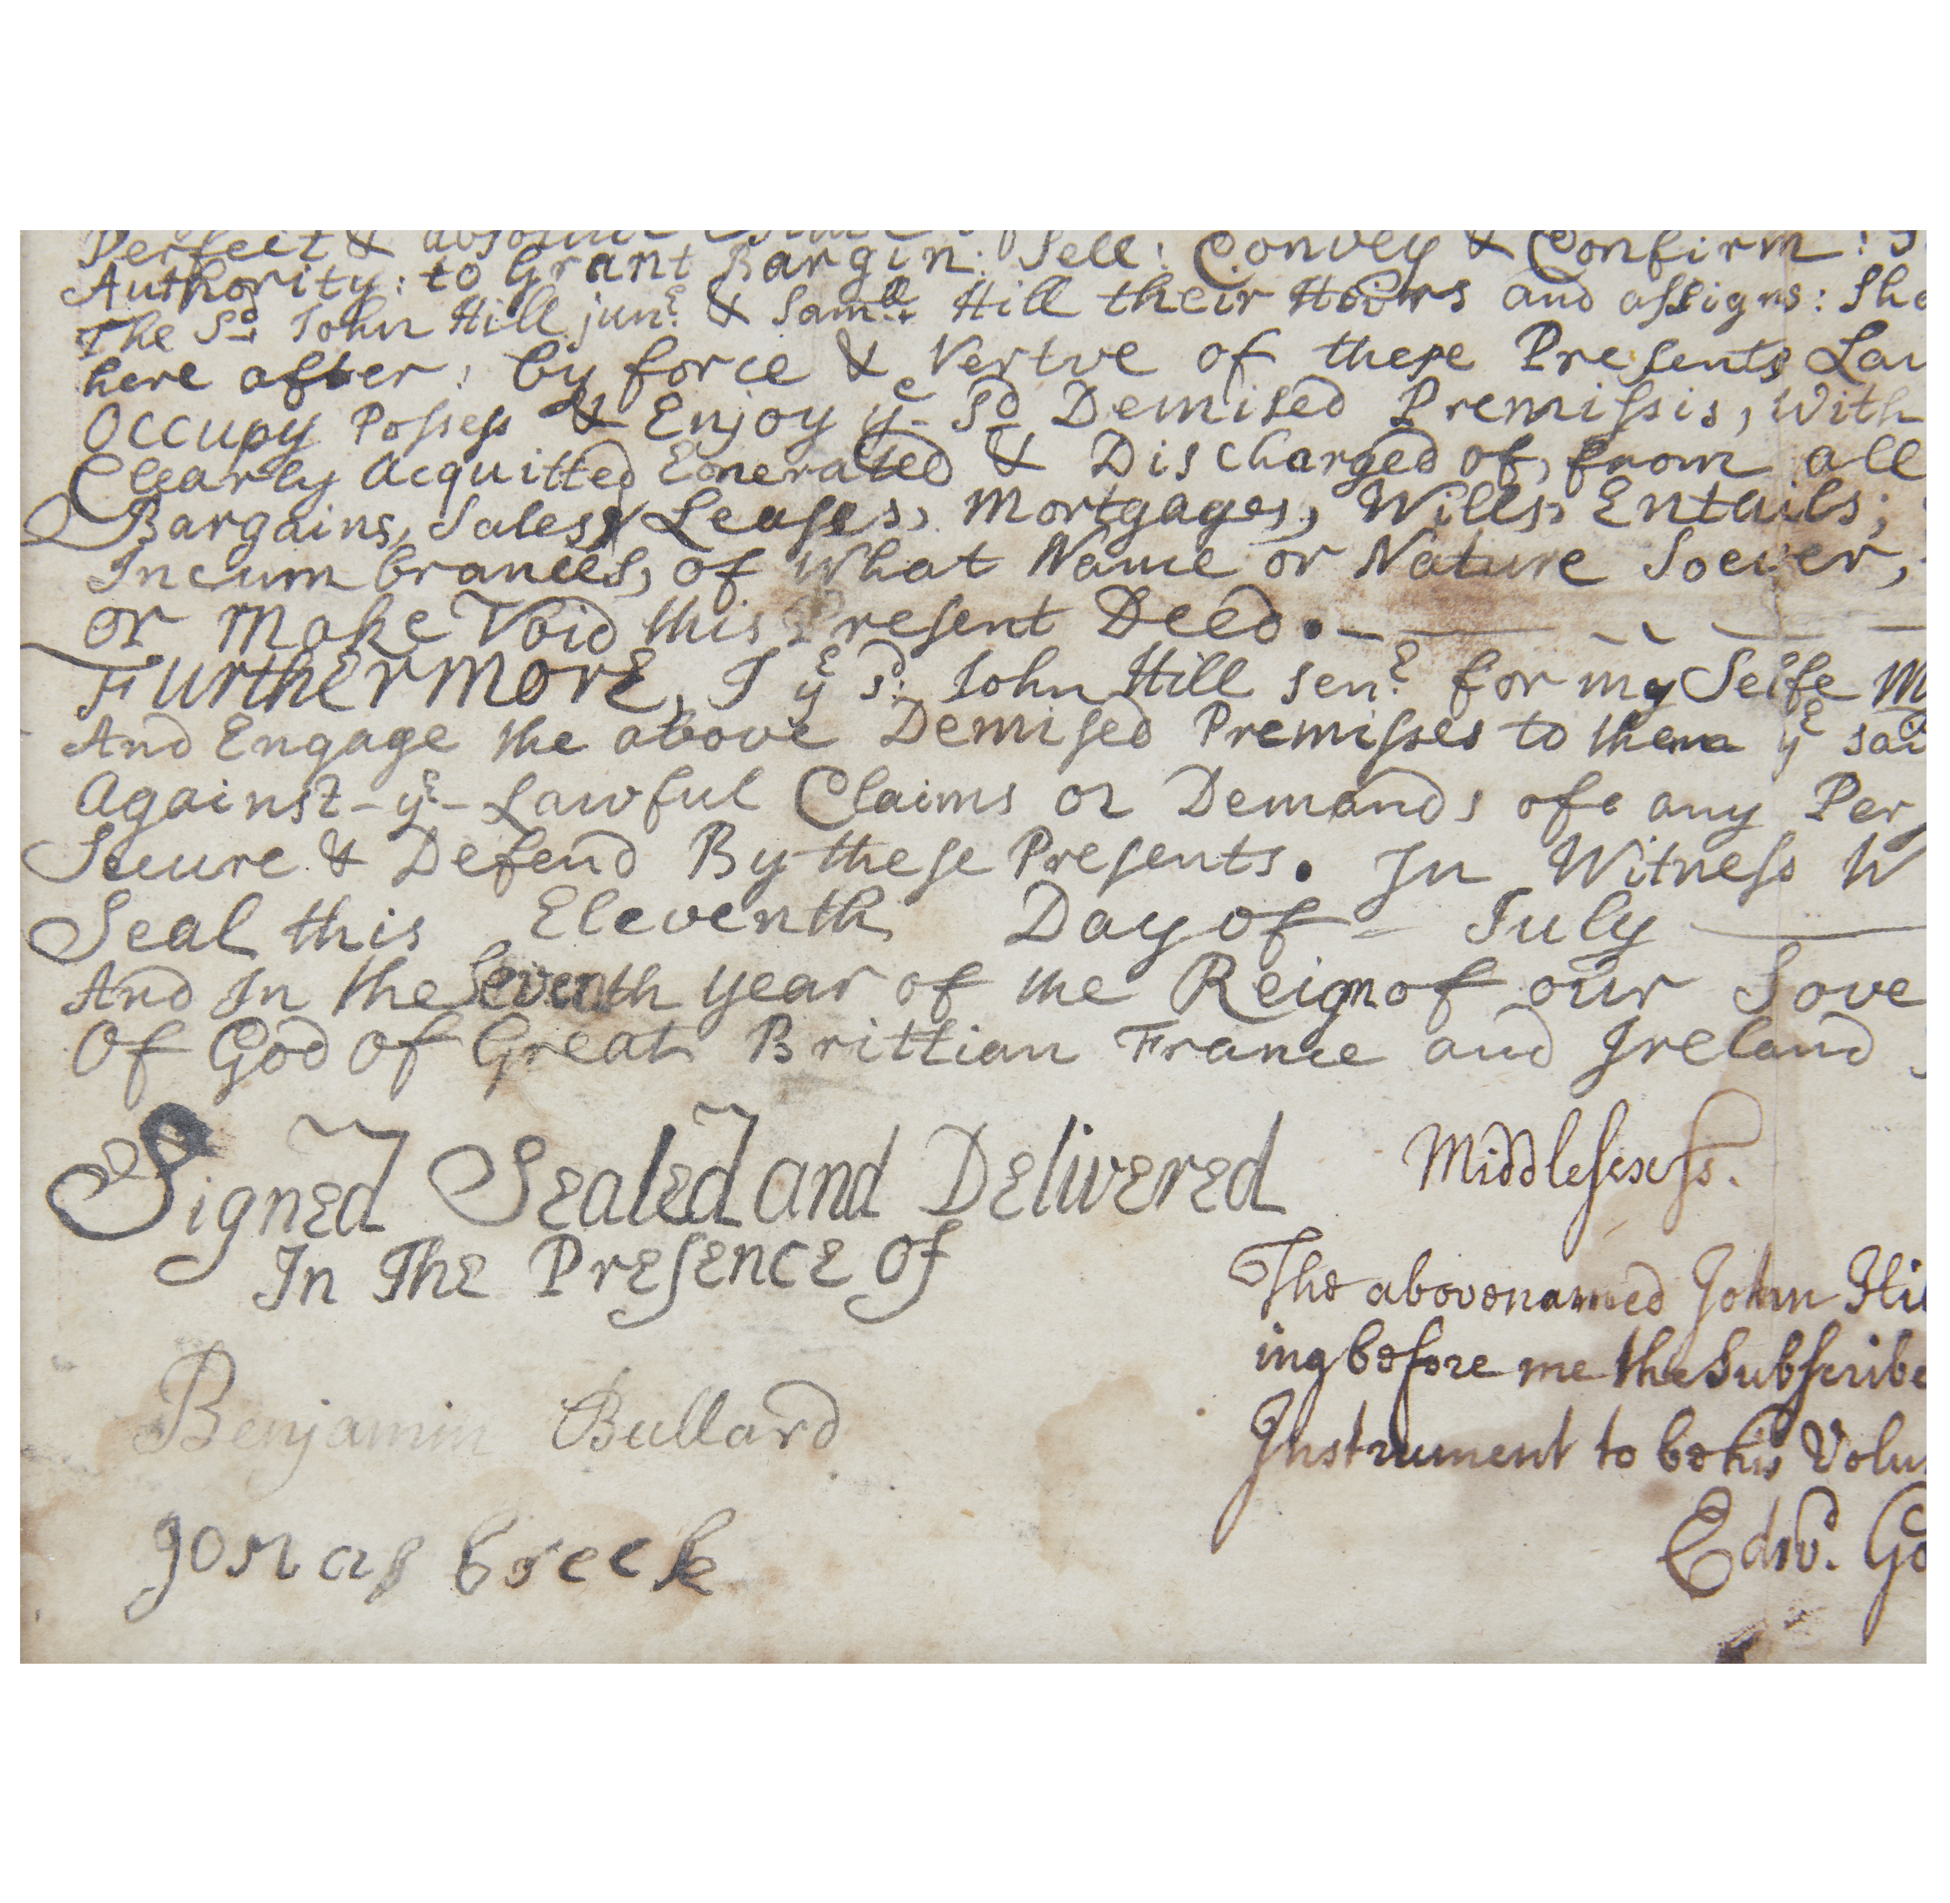 Perfect & absolute
Authority: to Grant Bargin: Sell: Convey & Confirm:
The Sd John Hill junr & Samll Hill their Heirs and assigns: Sha
here after, by force & Vertue of these Presents Law
Occupy Possess & Enjoy ye Sd Demised Premissis, With
Clearly Acquitted Exonerated & Discharged of, from all
Bargains, Sales, Leases, Mortgages, Wills, Entails;
Incumbrances, of What Name or Nature Soever,
or Make Void this Present Deed.
Furthermore, I ye sd John Hill senr for my Selfe My
And Engage the above Demised Premisses to them ye said
Against - ye - Lawful Claims or Demands of any Per
Secure & Defend By these Presents. In Witness W
Seal this Eleventh Day of - July
And In the Seventh year of the Reign of our Sove
Of God of Great Brittian France and Ireland
Signed Sealed and Delivered
In The Presence Of
Benjamin Bullard
Jonas breck
Middlesex ss.
The abovenamed John Hil
ing before me the Subscribe
Instrument to be his Volun
Edwd. Go